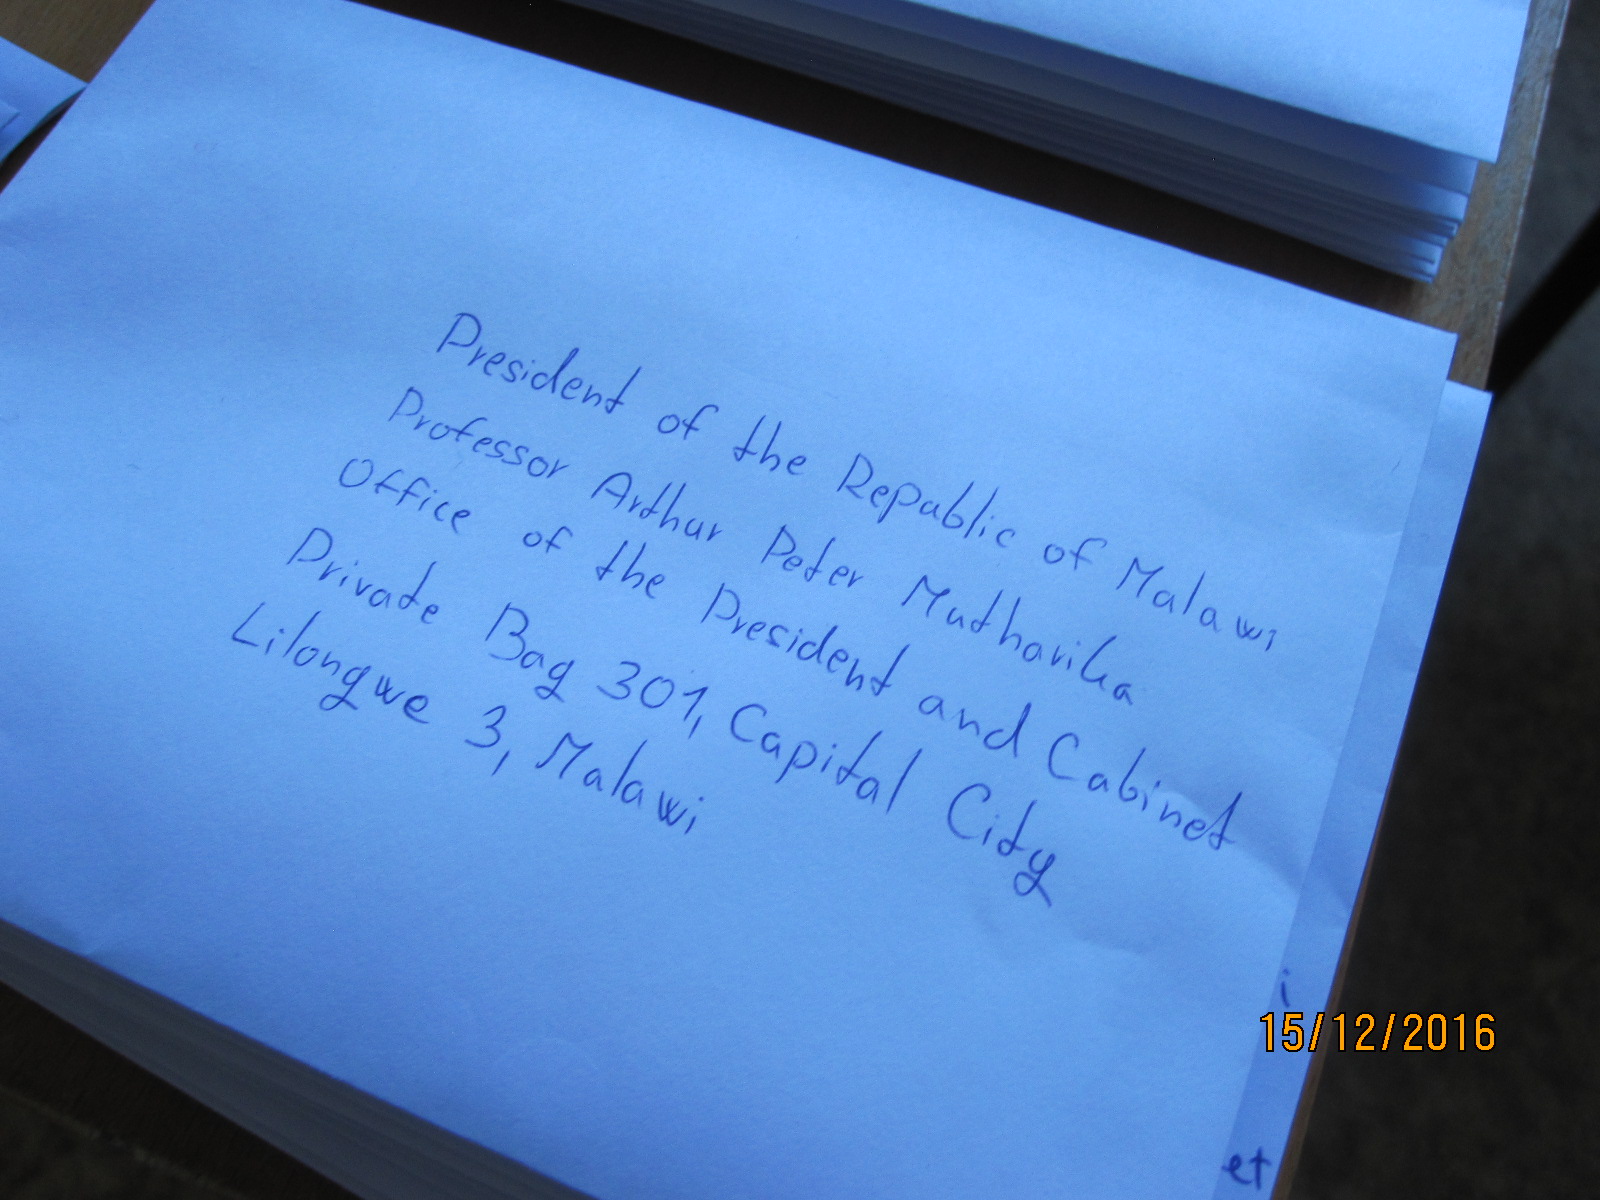 President of the Republic of Malawi
Professor Arthur Peter Mutharika
Office of the President and Cabinet
Private Bag 301, Capital City
Lilongwe 3, Malawi
i
15/12/2016
et